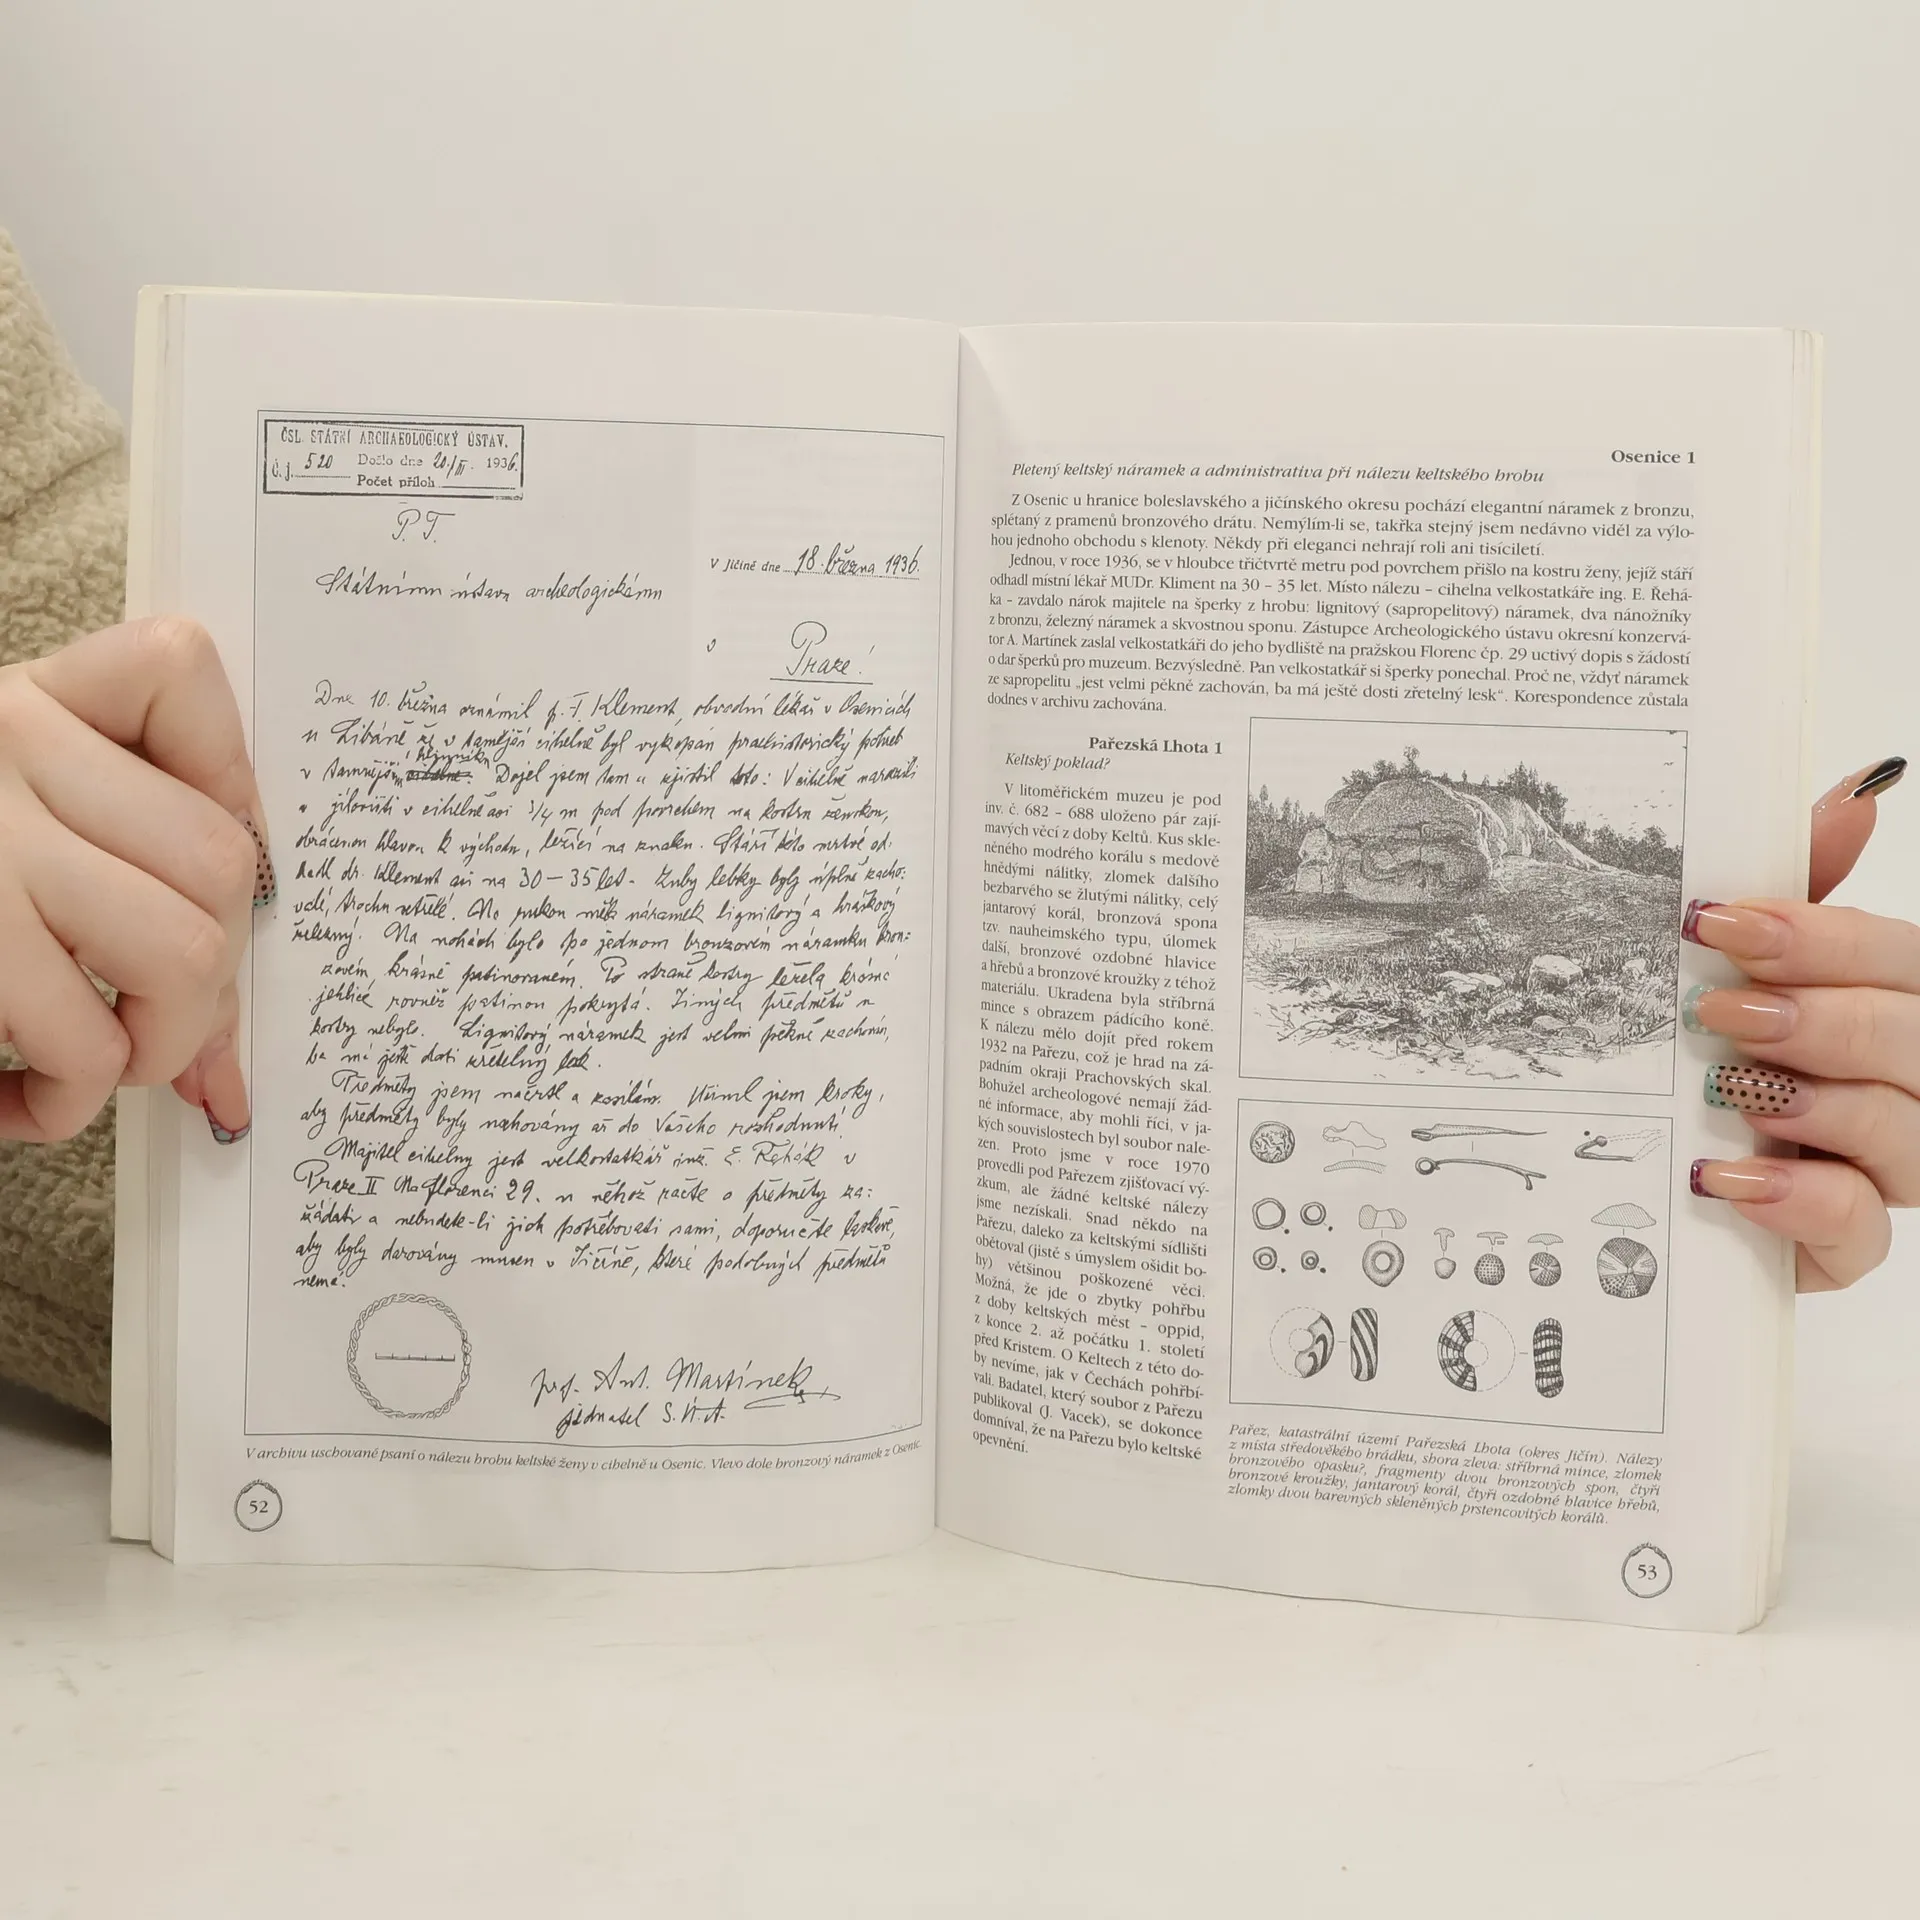 ČSL. STÁTNÍ ARCHAEOLOGICKÝ ÚSTAV.
Č. j. 520 Došlo dne 20/III. 1936.
Počet příloh
P. T.
V Jičíně dne 18. března 1936.
Státnímu ústavu archeologickému
v
Praze!
Dne 10. března oznámil p. F. Klement, obvodní lékař v Osenicích
u Libáně že v tamější cihelně byl vykopán praehistorický pohřeb
v tamnějším Dojel jsem tam a zjistil toto: V cihelně narazili
v jílovišti v cihelně asi 3/4 m pod povrchem na kostru ženskou,
obrácenou hlavou k východu, ležící na znaku. Stáří této mrtvé od-
hadl dr. Klement asi na 30 – 35 let. Zuby lebky byly úplně zacho-
valé, trochu setřelé. Na rukou měla náramek lignitový a
železný. Na nohách bylo po jednom bronzovém náramku bron-
zovém, krásně patinovaném. Po straně kostry ležela krásná
jehlice rovněž patinou pokrytá. Jiných předmětů u
kostry nebylo. Lignitový náramek jest velmi pěkně zachován,
ba má ještě dosti zřetelný lesk.
Předměty jsem načrtl a zasílám. Učinil jsem kroky,
aby předměty byly uschovány až do Vašeho rozhodnutí.
Majitel cihelny jest velkostatkář inž. E. Řehák v
Praze II Na florenci 29. u něhož račte o předměty za-
žádati a nebudete-li jich potřebovati sami, doporučte laskavě,
aby byly darovány museu v Jičíně, které podobných předmětů
nemá.
prof. Ant. Martínek
jednatel S. Ú. A.
V archivu uschované psaní o nálezu hrobu keltské ženy v cihelně u Osenic. Vlevo dole bronzový náramek z Osenic.
52
Osenice 1
Pletený keltský náramek a administrativa při nálezu keltského hrobu
Z Osenic u hranice boleslavského a jičínského okresu pochází elegantní náramek z bronzu,
splétaný z pramenů bronzového drátu. Nemýlím-li se, takřka stejný jsem nedávno viděl za výlo-
hou jednoho obchodu s klenoty. Někdy při eleganci nehrají roli ani tisíciletí.
Jednou, v roce 1936, se v hloubce tříčtvrtě metru pod povrchem přišlo na kostru ženy, jejíž stáří
odhadl místní lékař MUDr. Kliment na 30 – 35 let. Místo nálezu – cihelna velkostatkáře ing. E. Řehá-
ka – zavdalo nárok majitele na šperky z hrobu: lignitový (sapropelitový) náramek, dva nánožníky
z bronzu, železný náramek a skvostnou sponu. Zástupce Archeologického ústavu okresní konzervá-
tor A. Martínek zaslal velkostatkáři do jeho bydliště na pražskou Florenc čp. 29 uctivý dopis s žádostí
o dar šperků pro muzeum. Bezvýsledně. Pan velkostatkář si šperky ponechal. Proč ne, vždyť náramek
ze sapropelitu „jest velmi pěkně zachován, ba má ještě dosti zřetelný lesk“. Korespondence zůstala
dodnes v archivu zachována.
Pařezská Lhota 1
Keltský poklad?
V litoměřickém muzeu je pod
inv. č. 682 – 688 uloženo pár zají-
mavých věcí z doby Keltů. Kus skle-
něného modrého korálu s medově
hnědými nálitky, zlomek dalšího
bezbarvého se žlutými nálitky, celý
jantarový korál, bronzová spona
tzv. nauheimského typu, úlomek
další, bronzové ozdobné hlavice
a hřebů a bronzové kroužky z téhož
materiálu. Ukradena byla stříbrná
mince s obrazem pádícího koně.
K nálezu mělo dojít před rokem
1932 na Pařezu, což je hrad na zá-
padním okraji Prachovských skal.
Bohužel archeologové nemají žád-
né informace, aby mohli říci, v ja-
kých souvislostech byl soubor nale-
zen. Proto jsme v roce 1970
provedli pod Pařezem zjišťovací vý-
zkum, ale žádné keltské nálezy
jsme nezískali. Snad někdo na
Pařezu, daleko za keltskými sídlišti
obětoval (jistě s úmyslem ošidit bo-
hy) většinou poškozené věci.
Možná, že jde o zbytky pohřbu
z doby keltských měst – oppid,
z konce 2. až počátku 1. století
před Kristem. O Keltech z této do-
by nevíme, jak v Čechách pohřbí-
vali. Badatel, který soubor z Pařezu
publikoval (J. Vacek), se dokonce
domníval, že na Pařezu bylo keltské
opevnění.
Pařez, katastrální území Pařezská Lhota (okres Jičín). Nálezy
z místa středověkého hrádku, shora zleva: stříbrná mince, zlomek
bronzového opasku?, fragmenty dvou bronzových spon, čtyři
bronzové kroužky, jantarový korál, čtyři ozdobné hlavice hřebů,
zlomky dvou barevných skleněných prstencovitých korálů.
53